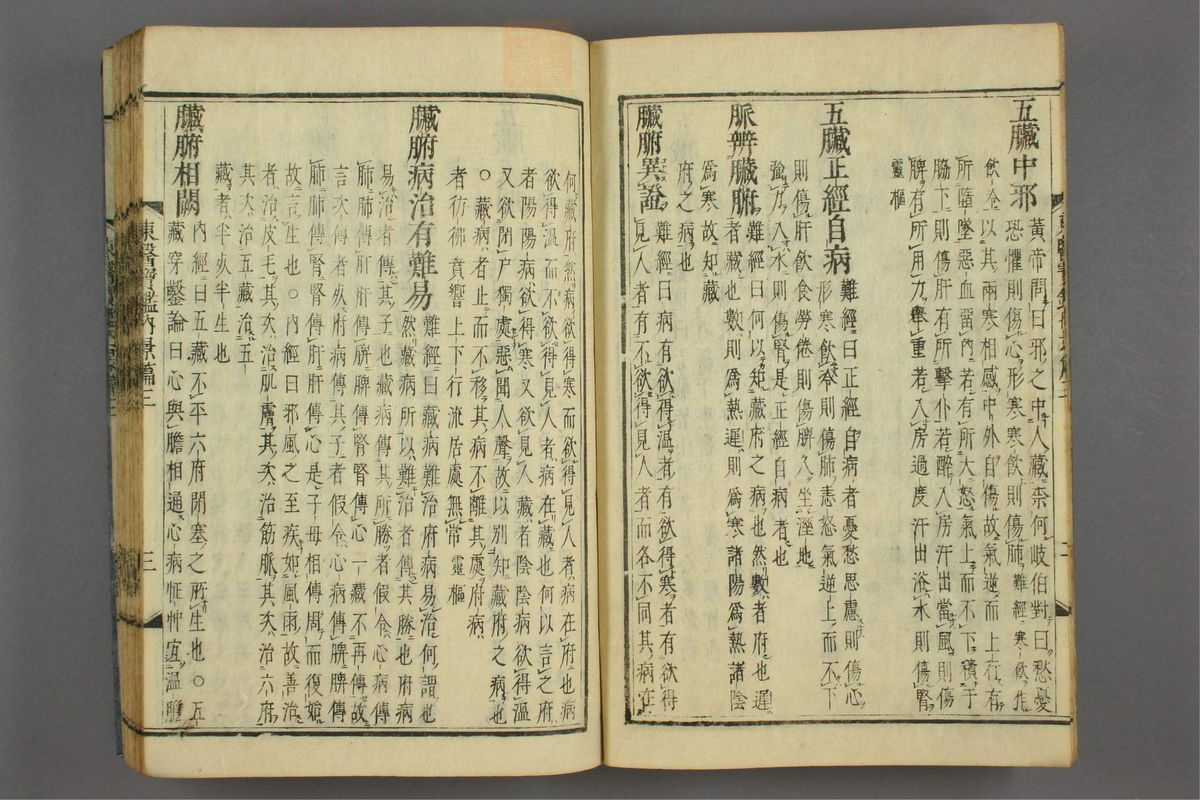 五臟中邪 黃帝問曰邪之中人藏柰何岐伯對曰愁憂
恐懼則傷心形寒寒飲則傷肺難經寒飲作
飲冷以其兩寒相感中外自傷故氣逆而上行有
所墮墜惡血留內若有所大怒氣上而不下積于
脇下則傷肝有所擊仆若醉入房汗出當風則傷
脾有所用力擧重若入房過度汗出浴水則傷腎
靈樞
五臟正經自病 難經曰正經自病者憂愁思慮則傷心
形寒飲冷則傷肺恚怒氣逆上而不下
則傷肝飲食勞倦則傷脾久坐溼地
強力入水則傷腎是正經自病者也
脈辨臟腑 難經曰何以知藏府之病也然數者府也遲
者藏也數則爲熱遲則爲寒諸陽爲熱諸陰
爲寒故知藏
府之病也
臟腑異證 難經曰病有欲得溫者有欲得寒者有欲得
見人者有不欲得見人者而各不同其病在
何藏府然病欲得寒而欲得見人者病在府也病
欲得溫而不欲得見人者病在藏也何以言之府
者陽陽病欲得寒又欲見人藏者陰陰病欲得溫
又欲閉戶獨處惡聞人聲故以別知藏府之病也
○藏病者止而不移其病不離其處府病
者彷彿賁響上下行流居處無常靈樞
臟腑病治有難易 難經曰藏病難治府病易治何謂也
然藏病所以難治者傳其勝也府病
易治者傳其子也藏病傳其所勝者假令心病傳
肺肺傳肝肝傳脾脾傳腎腎傳心一藏不再傳故
言次得者死府病傳其子者假令心病傳脾脾傳
肺肺傳腎腎傳肝肝傳心是子母相傳周而復始
故言生也○內經曰邪風之至疾如風雨故善治
者治皮毛其次治肌膚其次治筋脈其次治六府
其次治五藏治五
藏者半死半生也
臟腑相關 內經曰五藏不平六府閉塞之所生也○五
藏穿鑿論曰心與膽相通心病怔忡宜溫膽
東醫寶鑑內景篇三
三